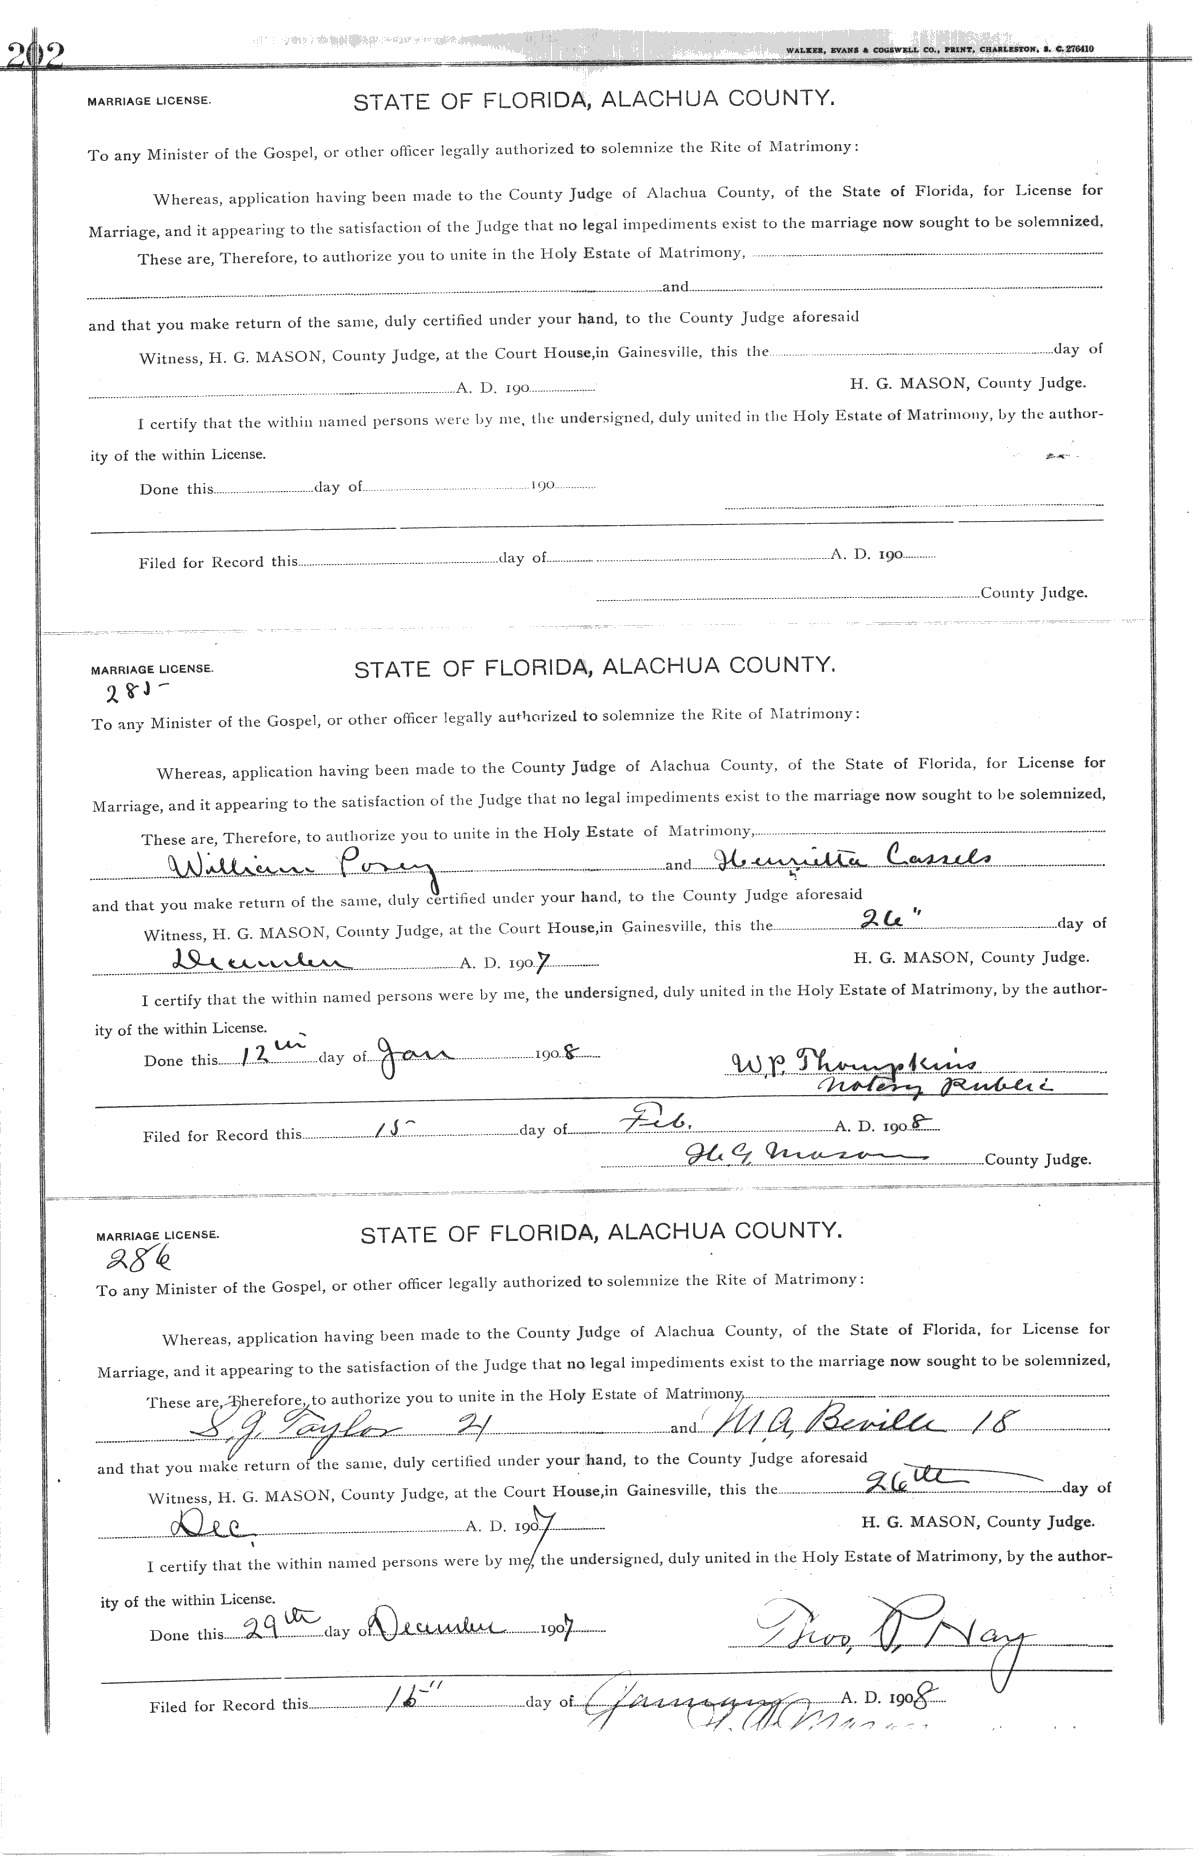 202
WALKER, EVANS & COGSWELL CO., PRINT, CHARLESTON, S. C. 276410
MARRIAGE LICENSE. STATE OF FLORIDA, ALACHUA COUNTY.
To any Minister of the Gospel, or other officer legally authorized to solemnize the Rite of Matrimony:
Whereas, application having been made to the County Judge of Alachua County, of the State of Florida, for License for
Marriage, and it appearing to the satisfaction of the Judge that no legal impediments exist to the marriage now sought to be solemnized,
These are, Therefore, to authorize you to unite in the Holy Estate of Matrimony,
and
and that you make return of the same, duly certified under your hand, to the County Judge aforesaid
Witness, H. G. MASON, County Judge, at the Court House, in Gainesville, this the day of
A. D. 190 H. G. MASON, County Judge.
I certify that the within named persons were by me, the undersigned, duly united in the Holy Estate of Matrimony, by the author-
ity of the within License.
Done this day of 190
Filed for Record this day of A. D. 190
County Judge.
MARRIAGE LICENSE. STATE OF FLORIDA, ALACHUA COUNTY.
285
To any Minister of the Gospel, or other officer legally authorized to solemnize the Rite of Matrimony:
Whereas, application having been made to the County Judge of Alachua County, of the State of Florida, for License for
Marriage, and it appearing to the satisfaction of the Judge that no legal impediments exist to the marriage now sought to be solemnized,
These are, Therefore, to authorize you to unite in the Holy Estate of Matrimony,
William Posey and Henrietta Cassels
and that you make return of the same, duly certified under your hand, to the County Judge aforesaid
Witness, H. G. MASON, County Judge, at the Court House, in Gainesville, this the 26" day of
December A. D. 1907 H. G. MASON, County Judge.
I certify that the within named persons were by me, the undersigned, duly united in the Holy Estate of Matrimony, by the author-
ity of the within License.
Done this 12th day of Jan 1908 W. P. Thompkins
Notary Public
Filed for Record this 15 day of Feb. A. D. 1908
H. G. Mason County Judge.
MARRIAGE LICENSE. STATE OF FLORIDA, ALACHUA COUNTY.
286
To any Minister of the Gospel, or other officer legally authorized to solemnize the Rite of Matrimony:
Whereas, application having been made to the County Judge of Alachua County, of the State of Florida, for License for
Marriage, and it appearing to the satisfaction of the Judge that no legal impediments exist to the marriage now sought to be solemnized,
These are, Therefore, to authorize you to unite in the Holy Estate of Matrimony,
S. J. Taylor 21 and M. A. Beville 18
and that you make return of the same, duly certified under your hand, to the County Judge aforesaid
Witness, H. G. MASON, County Judge, at the Court House, in Gainesville, this the 26th day of
Dec, A. D. 1907 H. G. MASON, County Judge.
I certify that the within named persons were by me, the undersigned, duly united in the Holy Estate of Matrimony, by the author-
ity of the within License.
Done this 29th day of December 1907 Thos, P, Hay
Filed for Record this 15" day of January A. D. 1908
H. G. Mason